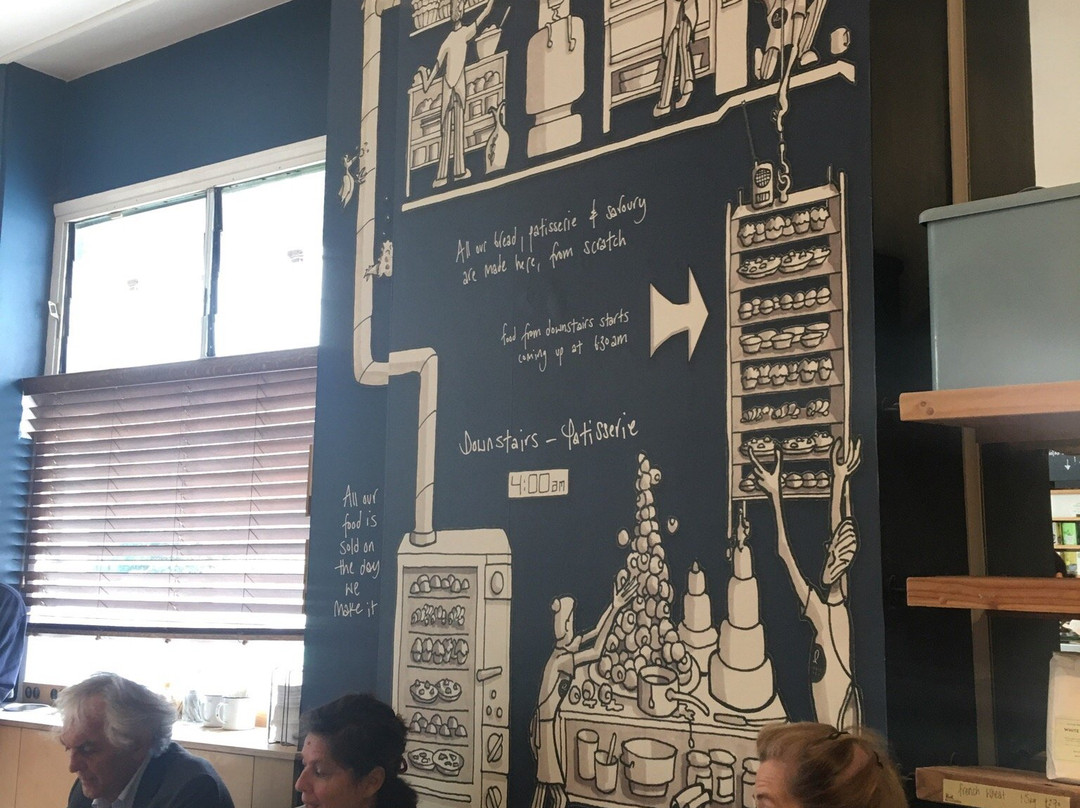 All our bread, patisserie & savoury
are made here, from scratch
food from downstairs starts
coming up at 630am
Downstairs - Patisserie
4:00am
All our
food is
sold on
the day
we
make it
french wheat